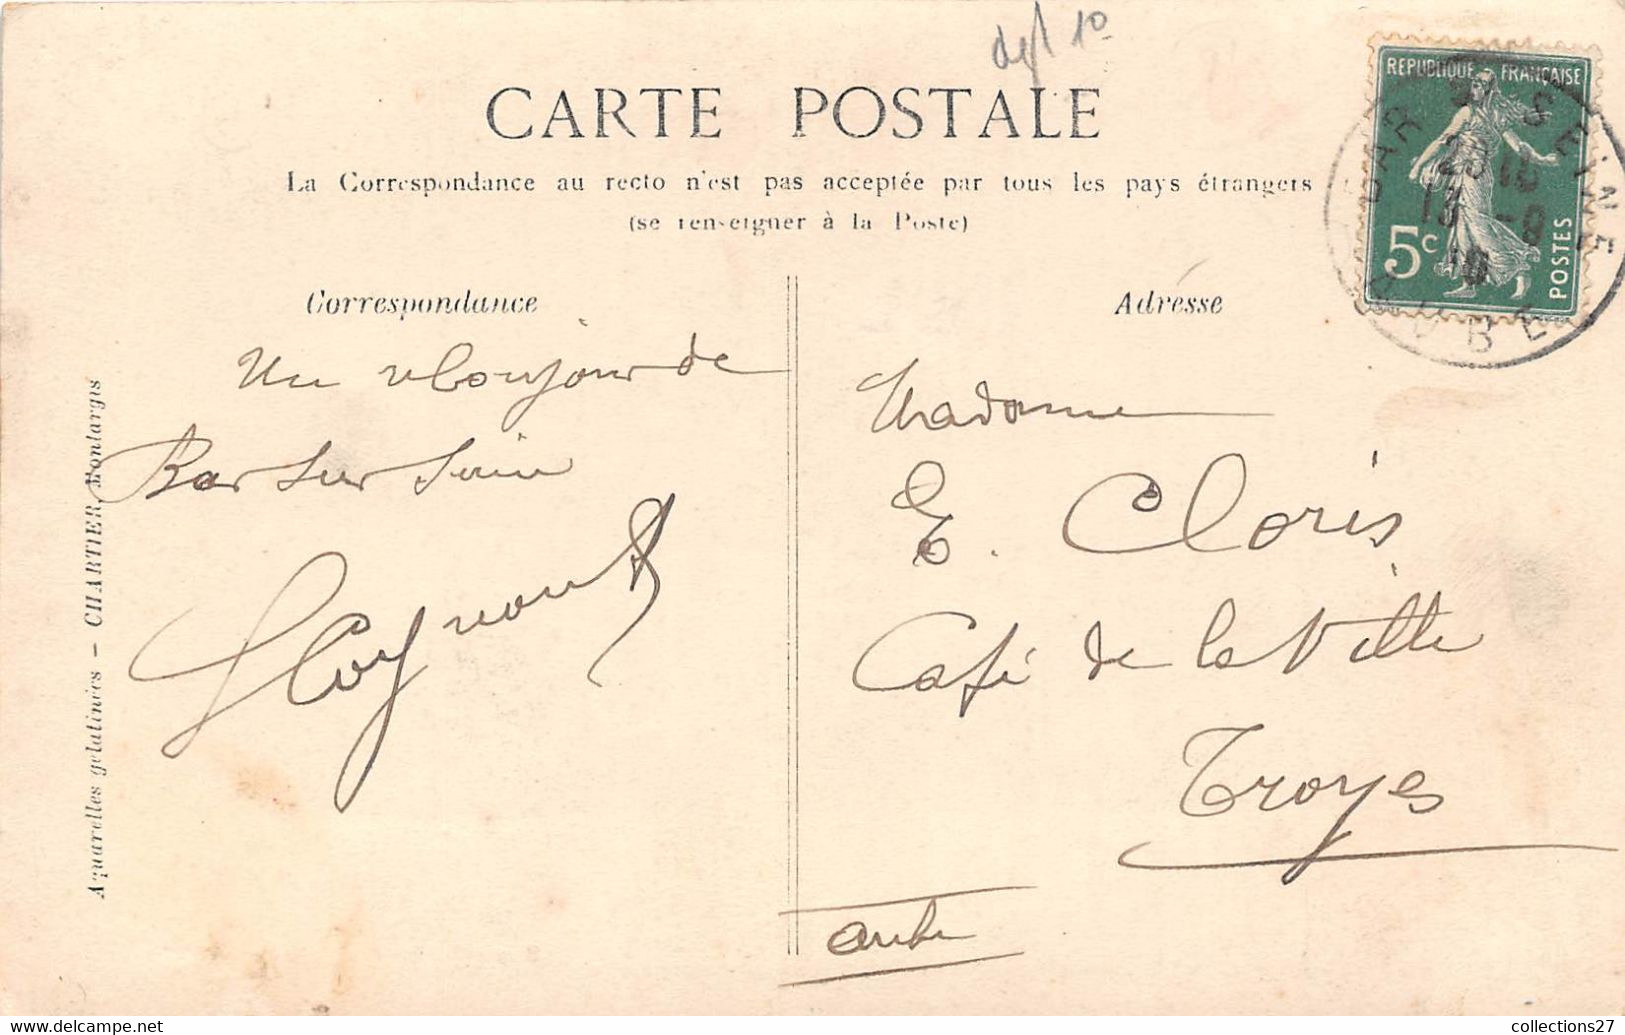 dépt 10
CARTE POSTALE
La Correspondance au recto n'est pas acceptée par tous les pays étrangers
(se renseigner à la Poste)
REPUBLIQUE FRANÇAISE
5c
POSTES
BAR S SEINE
AUBE
Correspondance
Un bonjour de
Bar sur Seine
Aquarelles gélatinées - CHARTIER, Montargis
Adrésse
Madame
E. Cloris
Café de la Ville
Troyes
Aube
collections27